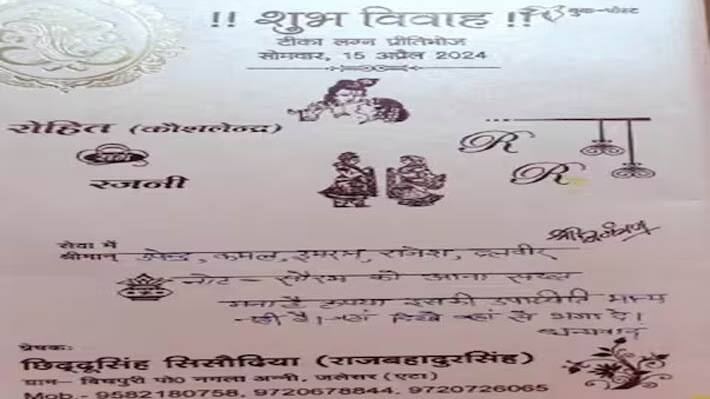 !! शुभ विवाह !!
बुक-पोस्ट
टीका लग्न प्रीतिभोज
सोमवार, 15 अप्रैल 2024
रोहित (कौशलेन्द्र)
संग
रजनी
R
R
सेवा में
श्रीमान् उपेन्द्र, कमल, इमरत, राजेश, दलवीर
नोट - सौरभ को आना सख्त
मना है कृपया इसकी उपस्थिति मान्य
नहीं है। जहां दिखे वहां से भगा दे।
धन्यवाद
प्रेषकः
छिद्दूसिंह सिसौदिया (राजबहादुरसिंह)
ग्राम- बिचपुरी पो0 नगला अन्नी, जलेसर (एटा)
Mob.- 9582180758, 9720678844, 9720726065